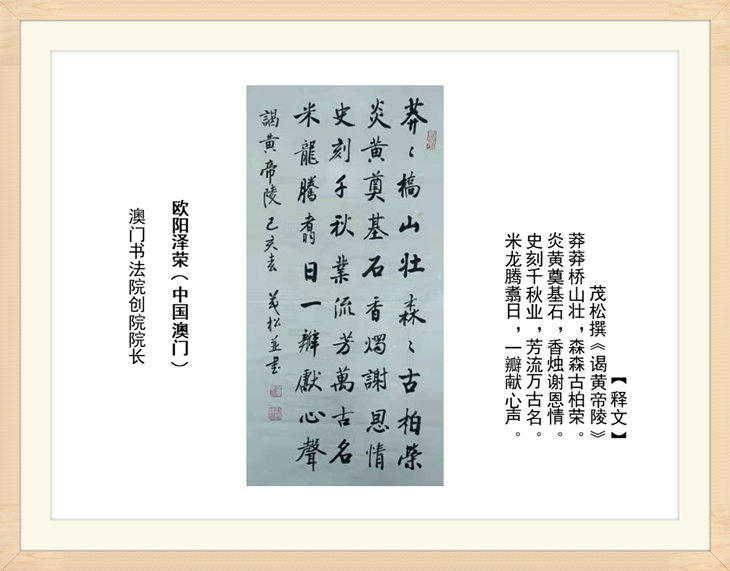 【释文】
茂松撰《谒黄帝陵》
莽莽桥山壮，森森古柏荣。
炎黄奠基石，香烛谢恩情。
史刻千秋业，芳流万古名。
米龙腾翥日，一瓣献心声。
莽〻橋山壯森〻古柏榮
炎黄奠基石香燭謝恩情
史刻千秋業流芳萬古名
米龍騰翥日一瓣獻心聲
謁黄帝陵 己亥 茂松並書
欧阳泽荣（中国澳门）
澳门书法院创院院长